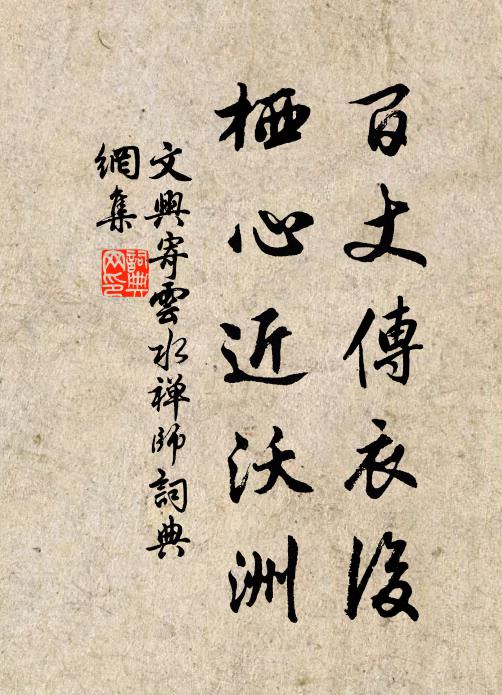 百丈傳衣後
栖心近沃洲
文興寄雲水禅師詞典
網集
詞典
网印